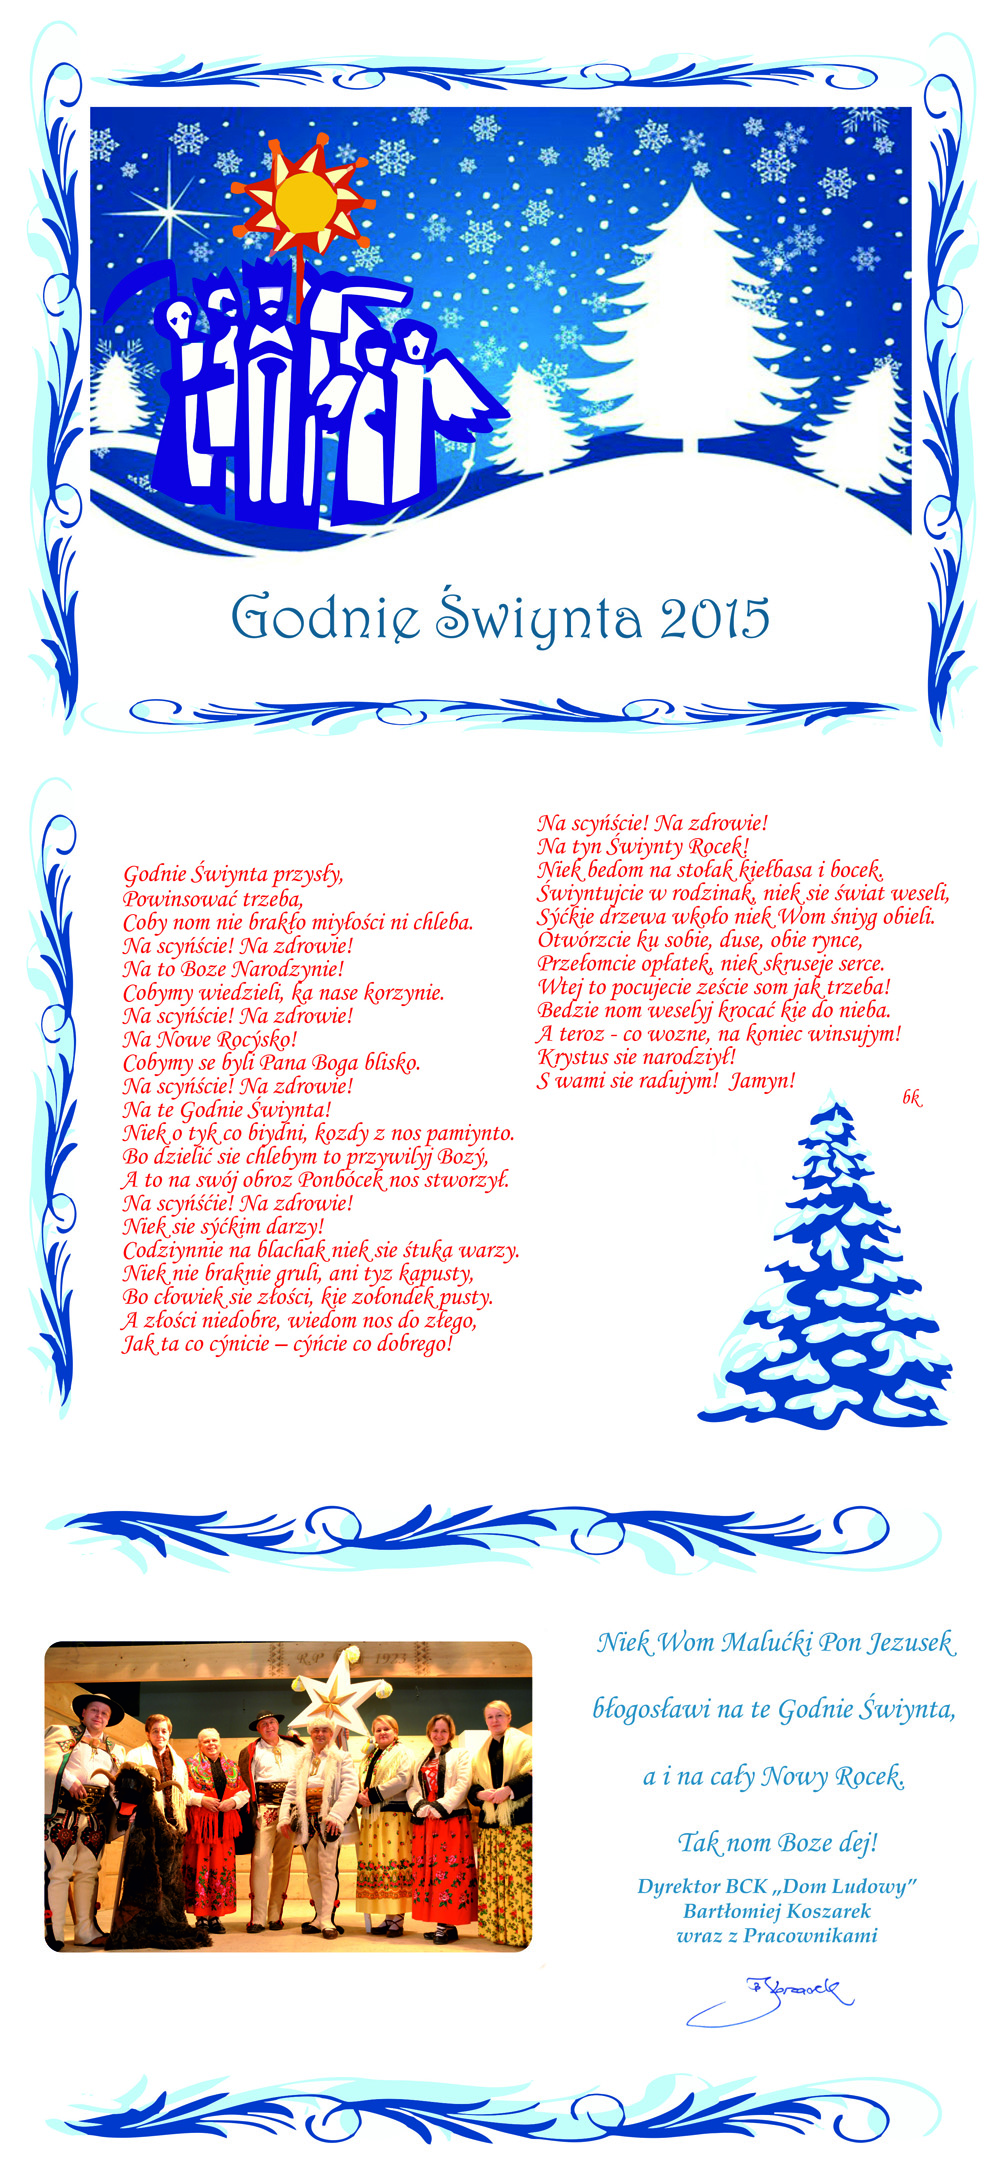 Godnię Świynta 2015
Godnie Świynta przysły,
Powinsować trzeba,
Coby nom nie brakło miyłości ni chleba.
Na scyńście! Na zdrowie!
Na to Boze Narodzynie!
Cobymy wiedzieli, ka nase korzynie.
Na scyńście! Na zdrowie!
Na Nowe Rocýsko!
Cobymy se byli Pana Boga blisko.
Na scyńście! Na zdrowie!
Na te Godnie Świynta!
Niek o tyk co biydni, kozdy z nos pamiynto.
Bo dzielić sie chlebym to przywilyj Bozý,
A to na swój obroz Ponbócek nos stworzył.
Na scyńśćie! Na zdrowie!
Niek sie sýćkim darzy!
Codziynnie na blachak niek sie śtuka warzy.
Niek nie braknie gruli, ani tyz kapusty,
Bo cłowiek sie złości, kie zołondek pusty.
A złości niedobre, wiedom nos do złego,
Jak ta co cýnicie – cýńcie co dobrego!
Na scyńście! Na zdrowie!
Na tyn Świynty Rocek!
Niek bedom na stołak kiełbasa i bocek.
Świyntujcie w rodzinak, niek sie świat weseli,
Sýćkie drzewa wkoło niek Wom śniyg obieli.
Otwórzcie ku sobie, duse, obie rynce,
Przełomcie opłatek, niek skruseje serce.
Wtej to pocujecie zeście som jak trzeba!
Bedzie nom weselyj krocać kie do nieba.
A teroz - co wozne, na koniec winsujym!
Krystus sie narodziył!
S wami sie radujym! Jamyn!
bk
R.P. 1923
Niek Wom Malućki Pon Jezusek
błogosławi na te Godnie Świynta,
a i na cały Nowy Rocek.
Tak nom Boze dej!
Dyrektor BCK „Dom Ludowy”
Bartłomiej Koszarek
wraz z Pracownikami